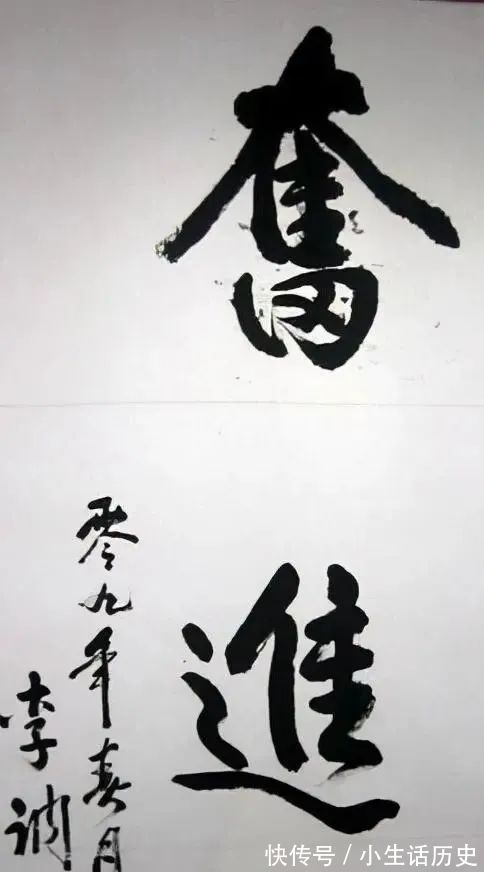 奮進
零九年春月
李讷
快传号/小生话历史